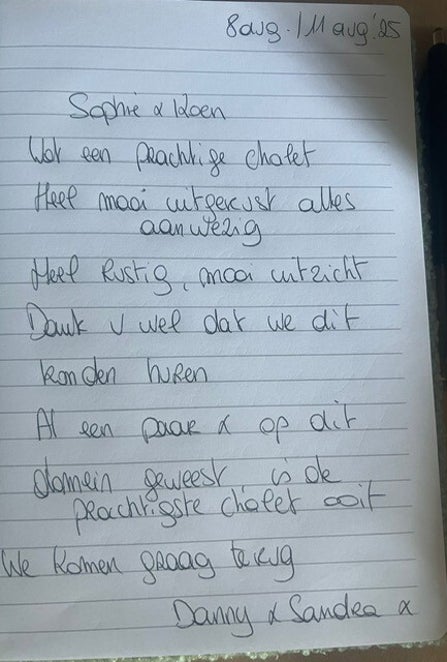 8 aug. / 11 aug '25
Sophie & Koen
Wat een prachtige chalet
Heel mooi uitgerust alles
aanwezig
Heel rustig, mooi uitzicht
Dank U wel dat we dit
konden huren
Al een paar x op dit
domein geweest, is de
prachtigste chalet ooit
We komen graag terug
Danny & Sandra x